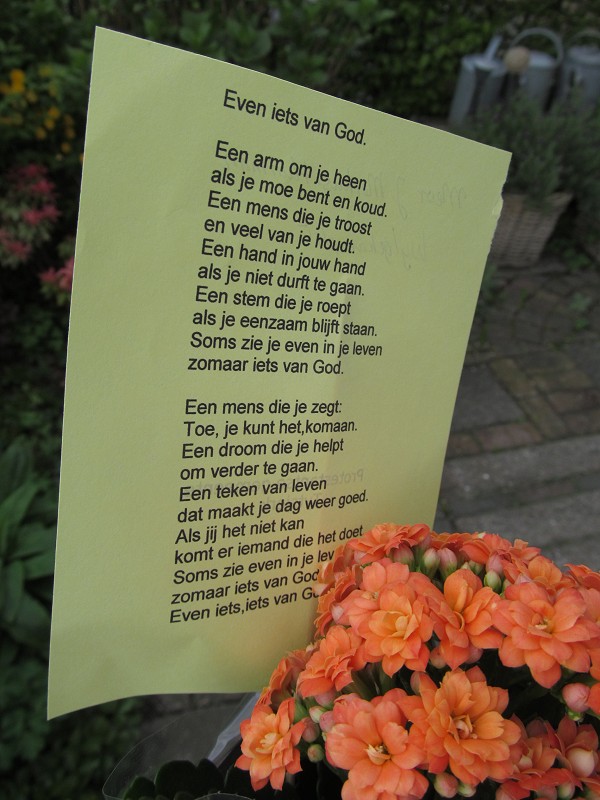 Even iets van God.
Een arm om je heen
als je moe bent en koud.
Een mens die je troost
en veel van je houdt.
Een hand in jouw hand
als je niet durft te gaan.
Een stem die je roept
als je eenzaam blijft staan.
Soms zie je even in je leven
zomaar iets van God.
Een mens die je zegt:
Toe, je kunt het,komaan.
Een droom die je helpt
om verder te gaan.
Een teken van leven
dat maakt je dag weer goed.
Als jij het niet kan
komt er iemand die het doet
Soms zie even in je lev
zomaar iets van God
Even iets,iets van